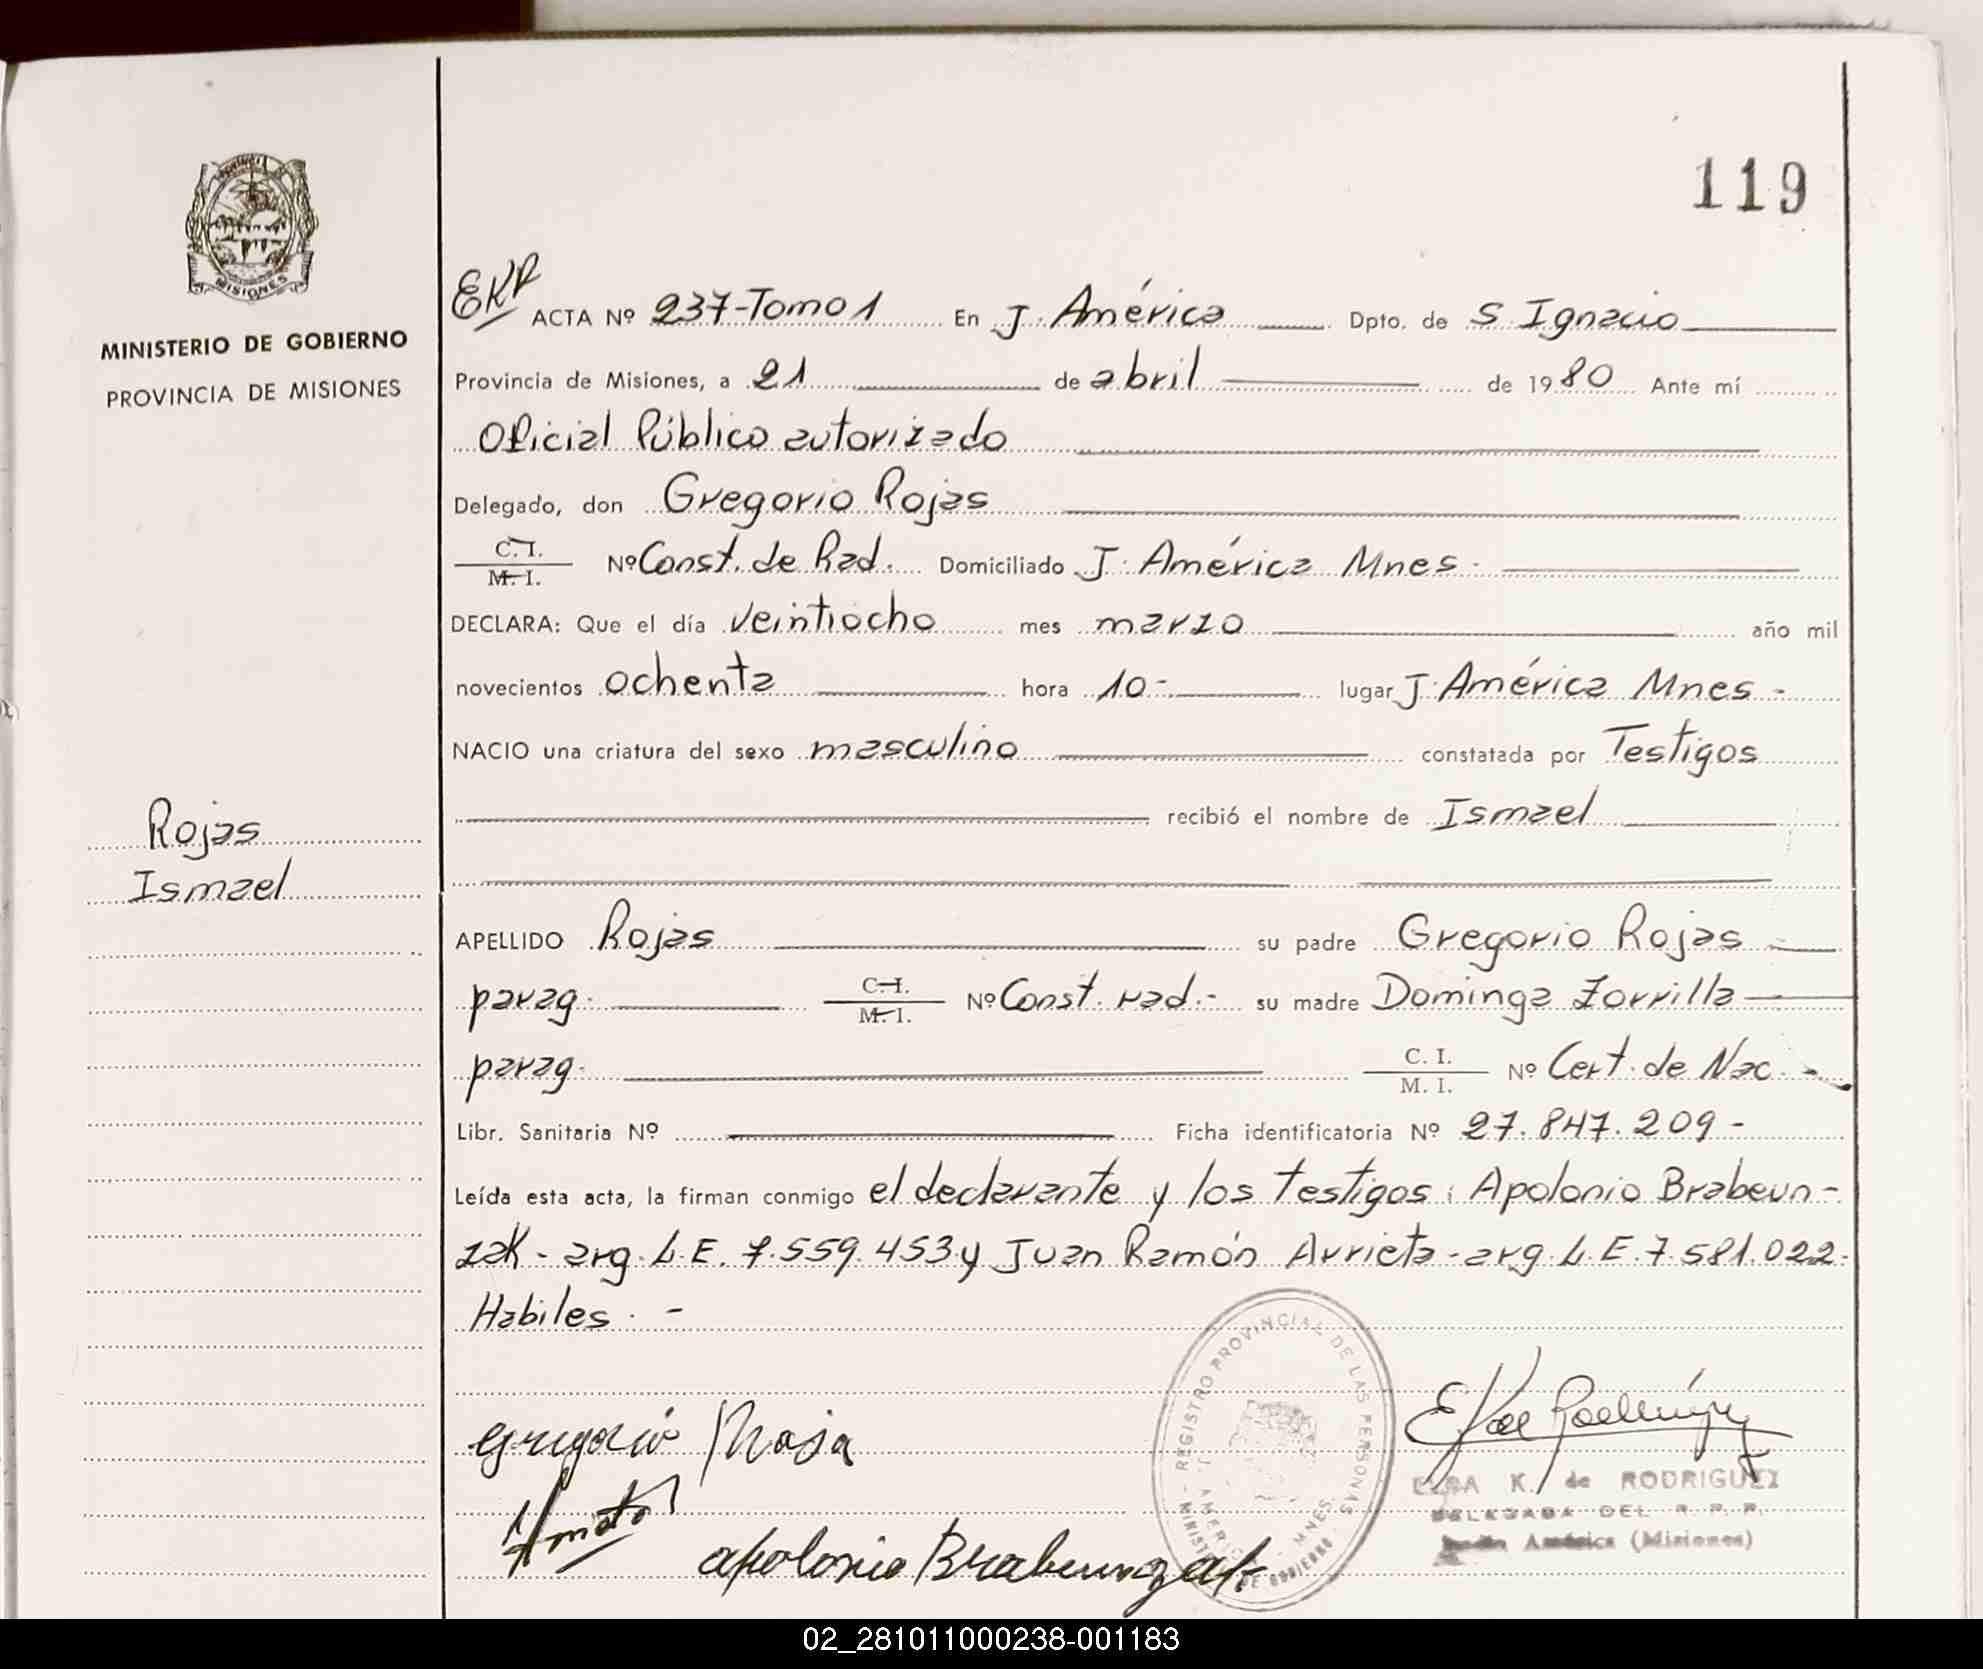 119
MISIONES
MINISTERIO DE GOBIERNO
PROVINCIA DE MISIONES
EKR ACTA Nº 237-Tomo 1 En J. América Dpto. de S. Ignacio
Provincia de Misiones, a 21 de abril de 1980 Ante mí
Oficial Público autorizado
Delegado, don Gregorio Rojas
C. I.
M. I. Nº Const. de Rad. Domiciliado J. América Mnes.
DECLARA: Que el día veintiocho mes marzo año mil
novecientos ochenta hora 10- lugar J. América Mnes -
NACIO una criatura del sexo masculino constatada por Testigos
recibió el nombre de Ismael
Rojas
Ismael
APELLIDO Rojas su padre Gregorio Rojas
parag. C. I.
M. I. Nº Const. rad.- su madre Dominga Zorrilla
parag. C. I.
M. I. Nº Cert. de Nac. -
Libr. Sanitaria Nº Ficha identificatoria Nº 27.847.209 -
Leída esta acta, la firman conmigo el declarante y los testigos: Apolonio Brabeun-
zak - arg. L.E. 7.559.453 y Juan Ramón Arrieta - arg. L.E. 7.581.022-
Habiles. -
Gregorio Roja
apolonio Brabeunzak
REGISTRO PROVINCIAL DE LAS PERSONAS
MINISTERIO DE GOBIERNO
J. AMERICA - MNES.
E K de Rodríguez
ELSA K. de RODRIGUEZ
DELEGADA DEL R. P. P.
Jardín América (Misiones)
02_281011000238-001183